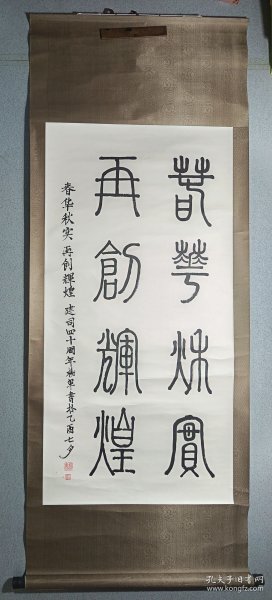 萅華秌實
再創輝煌
春华秋实 再创辉煌 建司四十周年 书於乙酉七夕
孔夫子旧书网